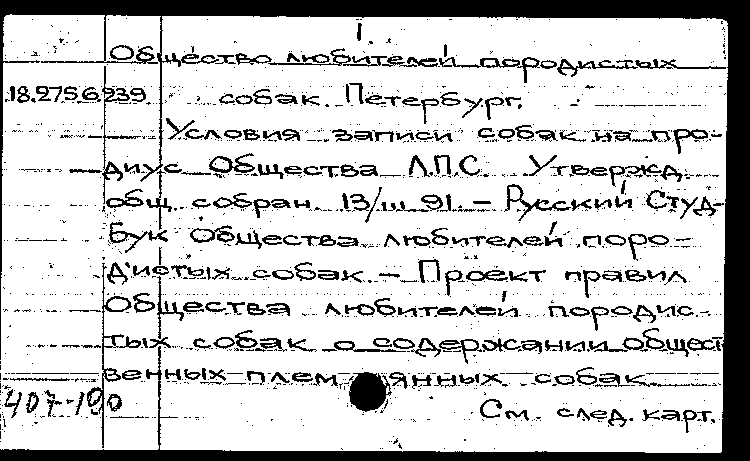 1.
Общество любителей породистых
18.275.6.239 собак. Петербург.
Условия записи собак на про-
диус Общества Л.П.С. Утвержд.
общ. собран. 13/III 91. – Русский Студ-
бук Общества любителей поро-
дистых собак. – Проект правил
Общества любителей породис-
тых собак о содержании общест
венных плем янных собак.
407-190 См. след. карт.